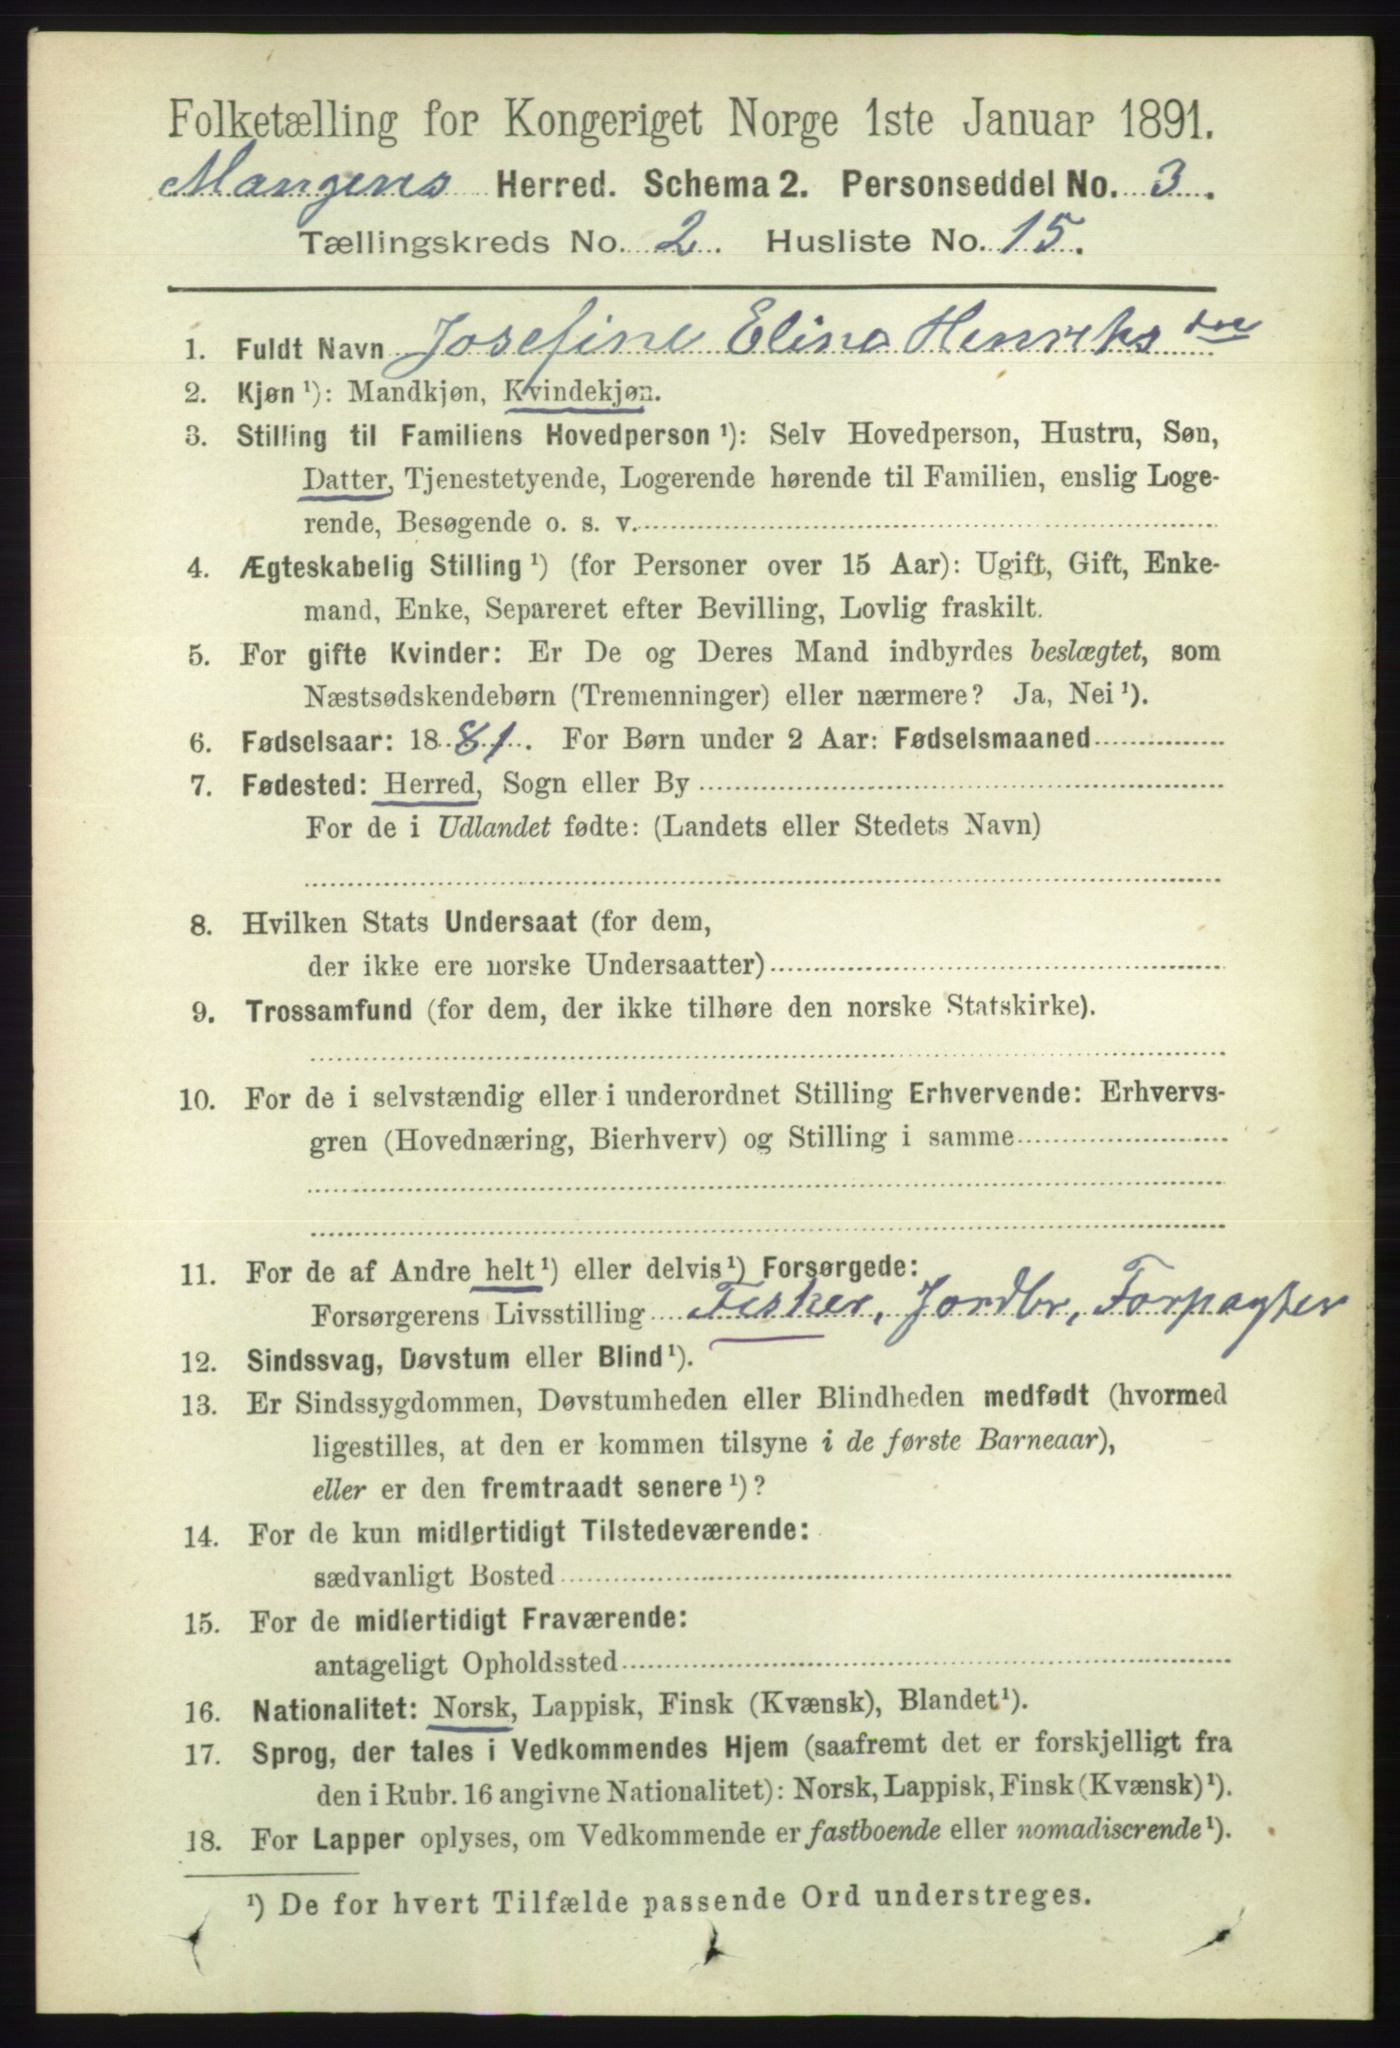 Folketælling for Kongeriget Norge 1ste Januar 1891.
Mangens Herred. Schema 2. Personseddel No. 3.
Tællingskreds No. 2. Husliste No. 15.
1. Fuldt Navn Josefine Elina Henriks dtr
2. Kjøn ¹): Mandkjøn, Kvindekjøn.
3. Stilling til Familiens Hovedperson ¹): Selv Hovedperson, Hustru, Søn,
Datter, Tjenestetyende, Logerende hørende til Familien, enslig Loge-
rende, Besøgende o. s. v.
4. Ægteskabelig Stilling ¹) (for Personer over 15 Aar): Ugift, Gift, Enke-
mand, Enke, Separeret efter Bevilling, Lovlig fraskilt.
5. For gifte Kvinder: Er De og Deres Mand indbyrdes beslægtet, som
Næstsødskendebørn (Tremenninger) eller nærmere? Ja, Nei ¹).
6. Fødselsaar: 1881. For Børn under 2 Aar: Fødselsmaaned
7. Fødested: Herred, Sogn eller By
For de i Udlandet fødte: (Landets eller Stedets Navn)
8. Hvilken Stats Undersaat (for dem,
der ikke ere norske Undersaatter)
9. Trossamfund (for dem, der ikke tilhøre den norske Statskirke).
10. For de i selvstændig eller i underordnet Stilling Erhvervende: Erhvervs-
gren (Hovednæring, Bierhverv) og Stilling i samme
11. For de af Andre helt ¹) eller delvis ¹) Forsørgede:
Forsørgerens Livsstilling Fisker, Jordbr, Forpagter
12. Sindssvag, Døvstum eller Blind ¹).
13. Er Sindssygdommen, Døvstumheden eller Blindheden medfødt (hvormed
ligestilles, at den er kommen tilsyne i de første Barneaar),
eller er den fremtraadt senere ¹)?
14. For de kun midlertidigt Tilstedeværende:
sædvanligt Bosted
15. For de midlertidigt Fraværende:
antageligt Opholdssted
16. Nationalitet: Norsk, Lappisk, Finsk (Kvænsk), Blandet ¹).
17. Sprog, der tales i Vedkommendes Hjem (saafremt det er forskjelligt fra
den i Rubr. 16 angivne Nationalitet): Norsk, Lappisk, Finsk (Kvænsk) ¹).
18. For Lapper oplyses, om Vedkommende er fastboende eller nomadiserende ¹).
¹) De for hvert Tilfælde passende Ord understreges.